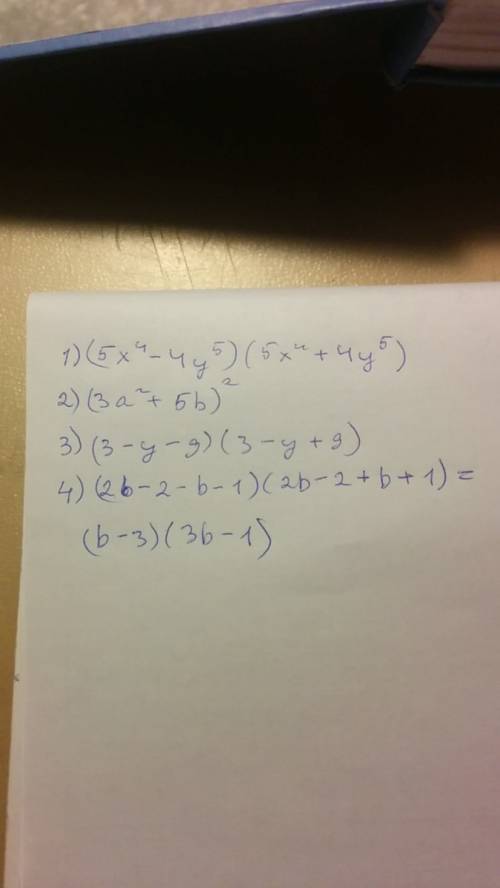 1) (5x⁴ - 4y⁵) (5x⁴ + 4y⁵)
2) (3a² + 5b)²
3) (3 - y - 9) (3 - y + 9)
4) (2b - 2 - b - 1) (2b - 2 + b + 1) =
(b - 3) (3b - 1)